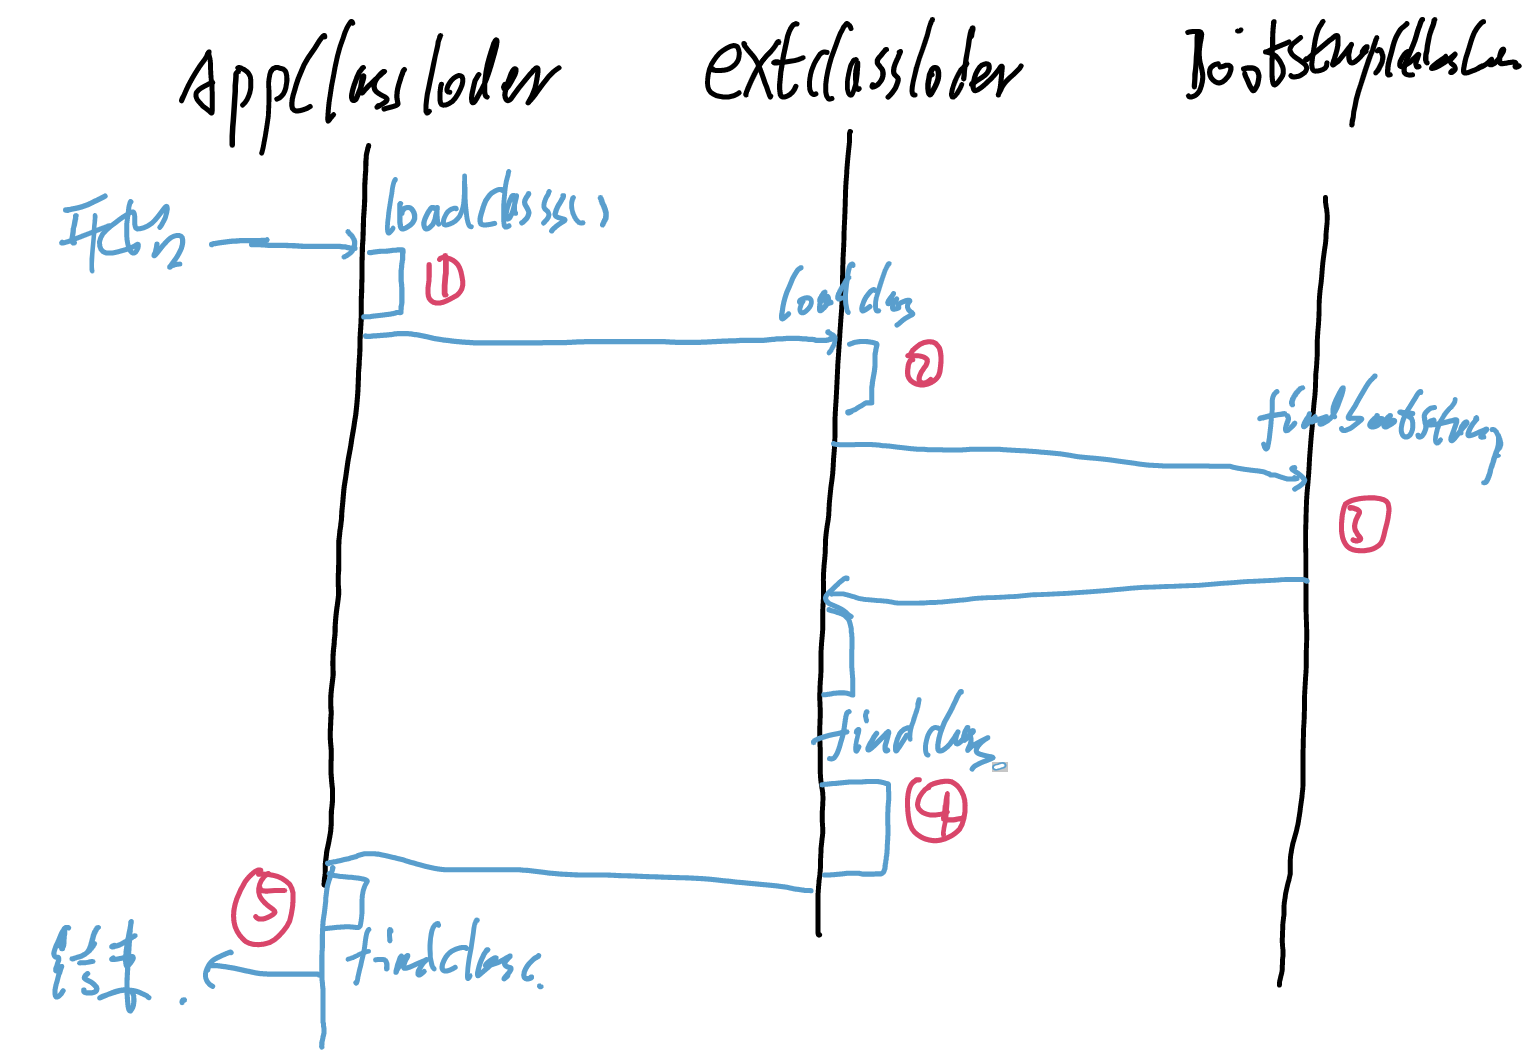 AppClassLoder
extclassloder
BootstrapClassLoder
开始
loadclass()
①
loadclass
②
findbootstrap
③
findclass
④
⑤
findclass
结束.